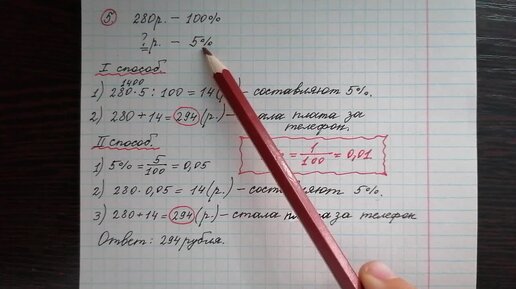 ⑤ 280р. – 100%
? р. – 5%
I способ
1400
1) 280·5:100=14(р.) – составляют 5%.
2) 280+14=294(р.) – стала плата за
телефон.
II способ
1) 5% = 5/100 = 0,05
= 1/100 = 0,01
2) 280·0,05=14(р.) – составляют 5%.
3) 280+14=294(р.) – стала плата за телефон
Ответ: 294 рубля.